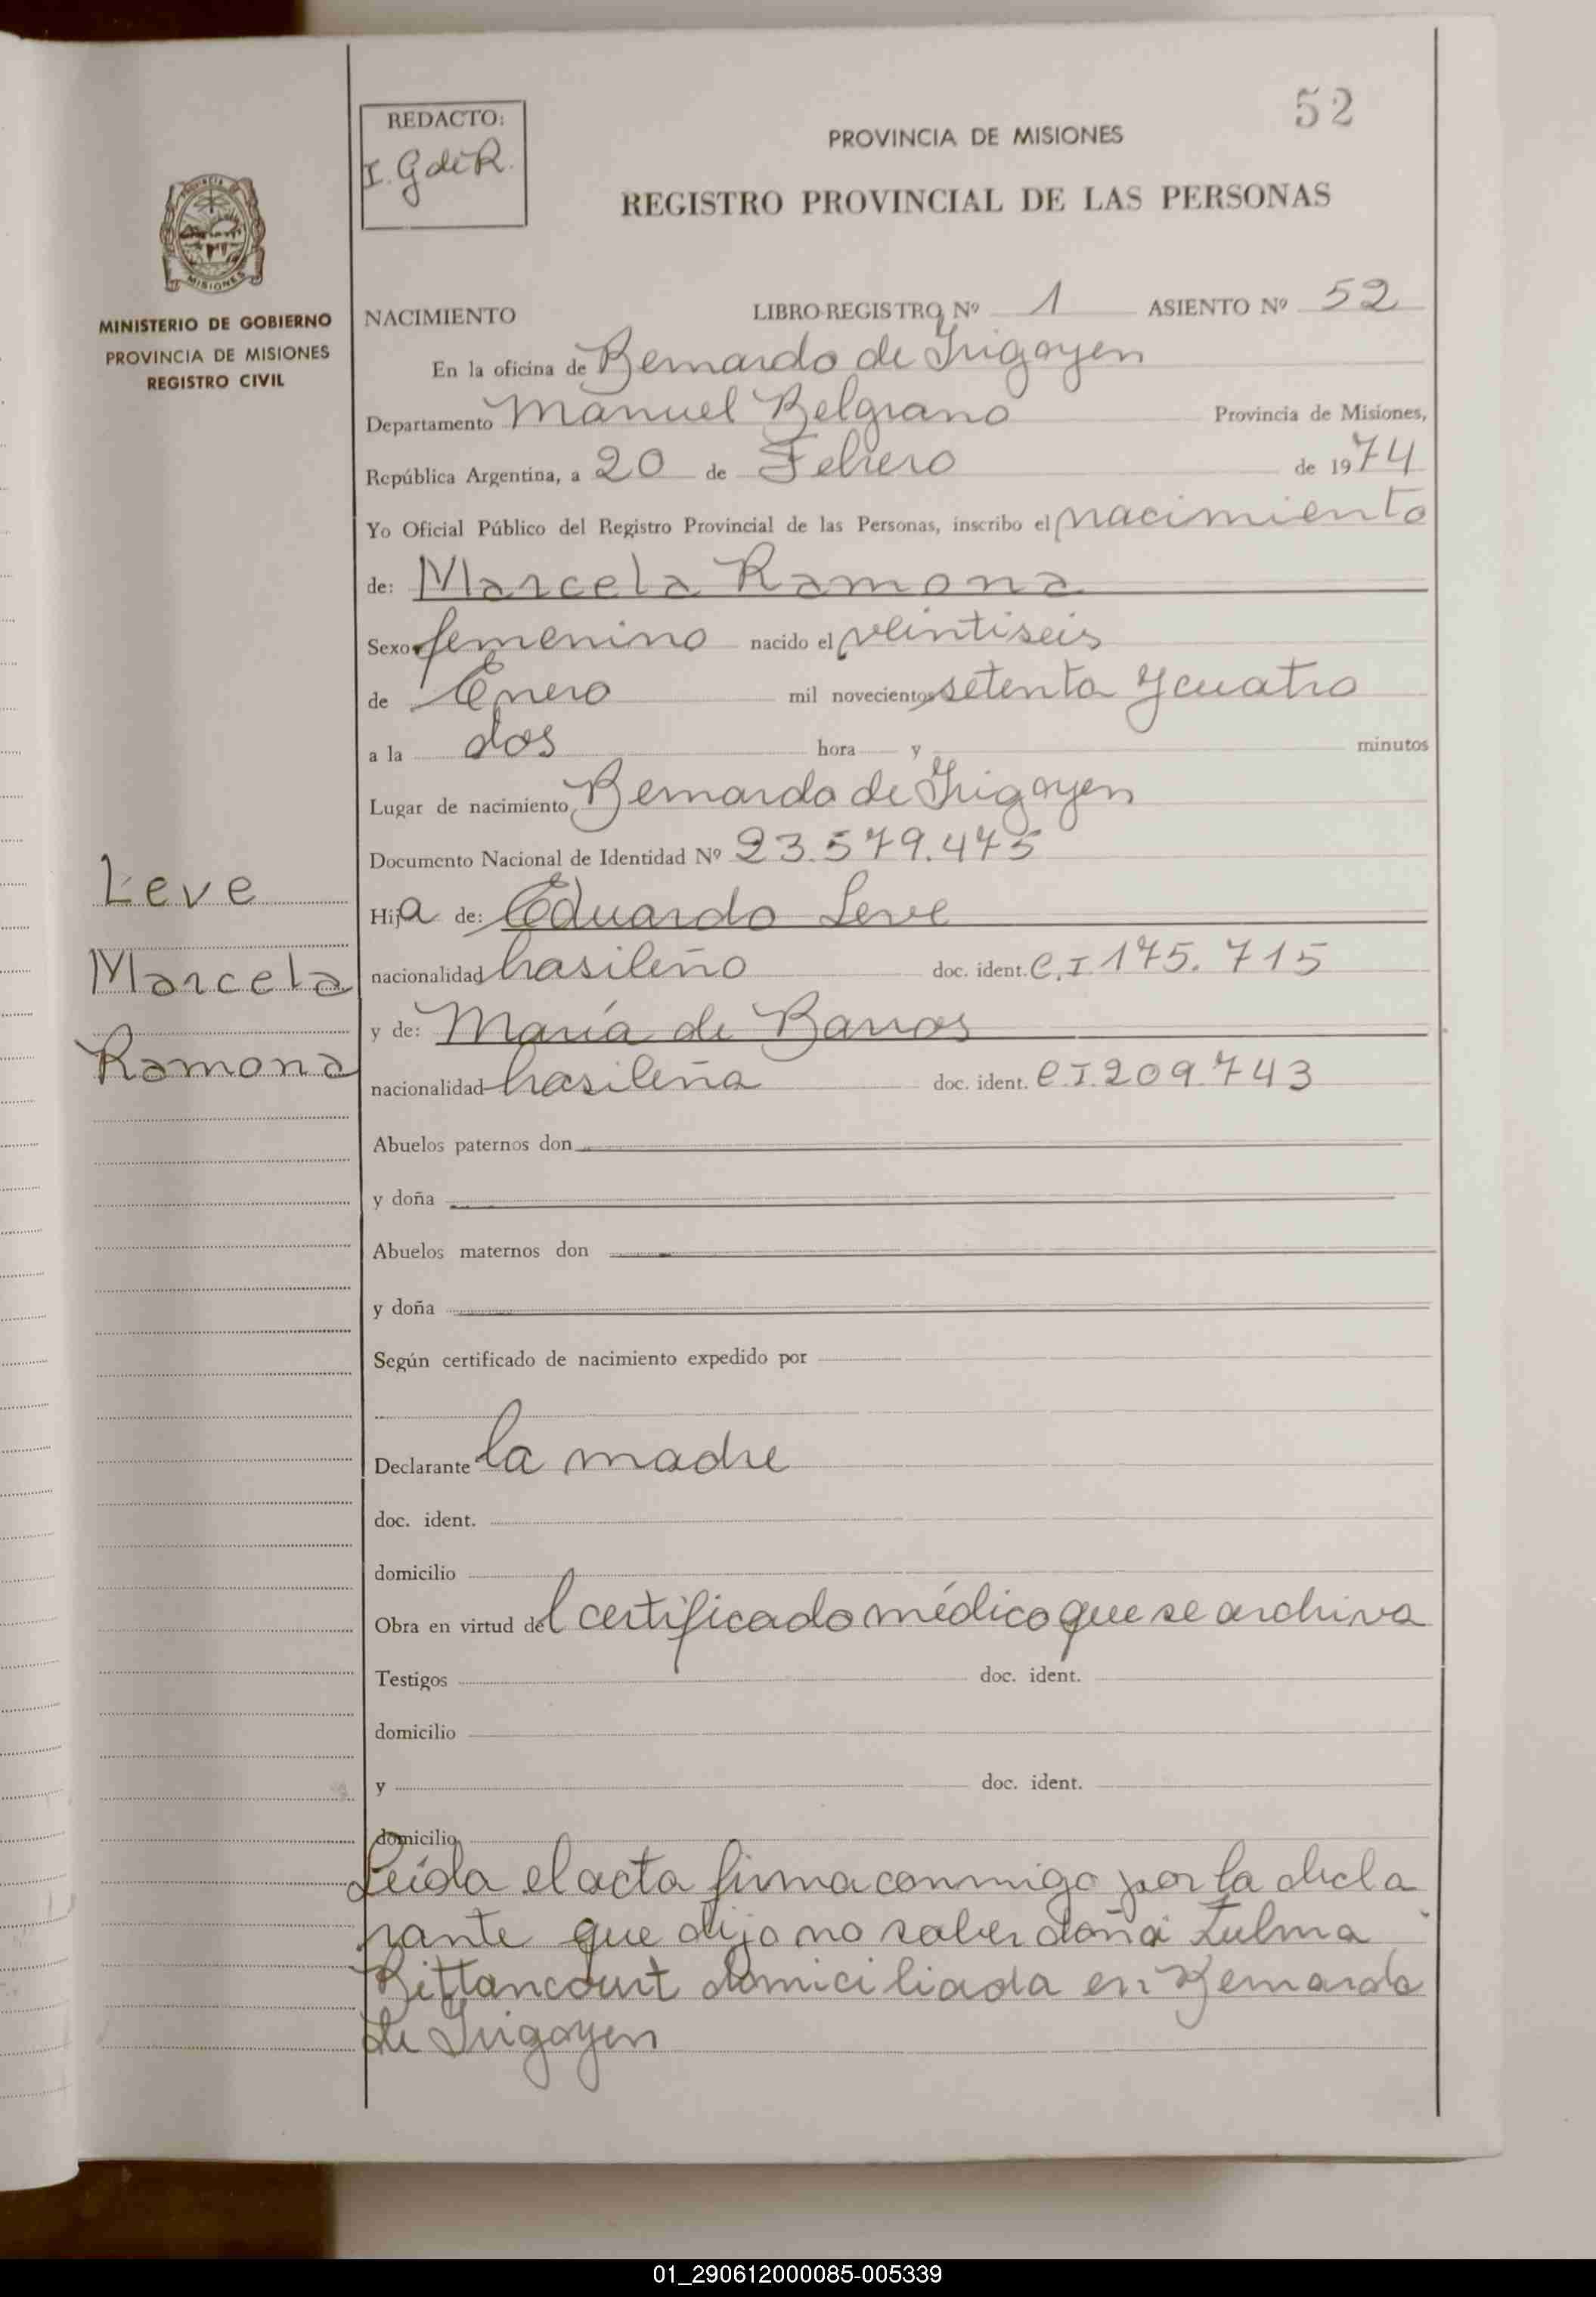 52
REDACTO:
I. G de R.
PROVINCIA DE MISIONES
REGISTRO PROVINCIAL DE LAS PERSONAS
MISIONES
MINISTERIO DE GOBIERNO
PROVINCIA DE MISIONES
REGISTRO CIVIL
NACIMIENTO LIBRO-REGISTRO Nº 1 ASIENTO Nº 52
En la oficina de Bernardo de Irigoyen
Departamento Manuel Belgrano Provincia de Misiones,
República Argentina, a 20 de Febrero de 1974
Yo Oficial Público del Registro Provincial de las Personas, inscribo el nacimiento
de: Marcela Ramona
Sexo femenino nacido el veintiseis
de Enero mil novecientos setenta y cuatro
a la dos hora y minutos
Lugar de nacimiento Bernardo de Irigoyen
Documento Nacional de Identidad Nº 23.579.475
Leve
Marcela
Ramona
Hija de: Eduardo Leve
nacionalidad brasileño doc. ident. C.I. 175.715
y de: María de Barros
nacionalidad brasileña doc. ident. C.I. 209.743
Abuelos paternos don
y doña
Abuelos maternos don
y doña
Según certificado de nacimiento expedido por
Declarante la madre
doc. ident.
domicilio
Obra en virtud del certificado médico que se archiva
Testigos doc. ident.
domicilio
y doc. ident.
domicilio
Leída el acta firma conmigo por la decla
rante que dijo no saber doña Zulma
Bittancourt domiciliada en Bernardo
de Irigoyen
01_290612000085-005339